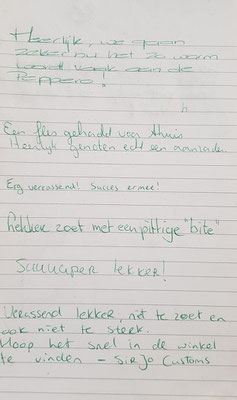 Heerlijk, we gaan
zeker nu het zo warm
wordt vaak aan de
Peppere!
Een fles gehaald voor thuis
Heerlijk genoten echt een aanrader.
Erg verrassend! Succes ermee!
Lekker zoet met een pittige "bite"
Suuuuper lekker!
Verassend lekker, nit te zoet en
ook niet te sterk.
Hoop het snel in de winkel
te vinden - SirJo Customs